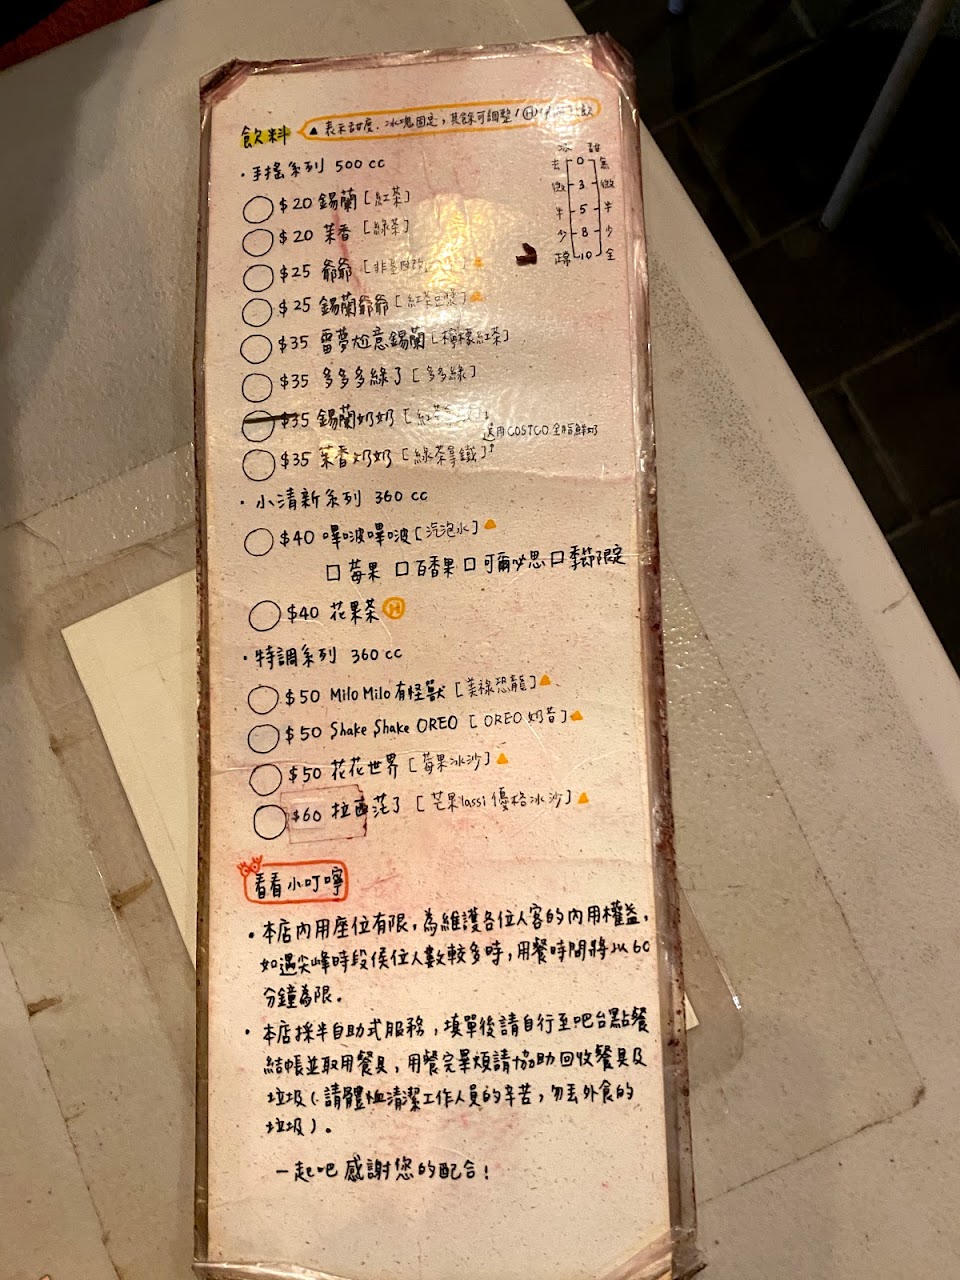 飲料 ▲表示甜度.冰塊固定,其餘可調整!Ⓗ
冰 甜
去 0 無
微 3 微
半 5 半
少 8 少
正常 10 全
·手搖系列 500 cc
$20 錫蘭[紅茶]
$20 茉香[綠茶]
$25 爺爺[非基因改
$25 錫蘭爺爺[紅茶豆漿]▲
$35 雷夢尬意錫蘭[檸檬紅茶]
$35 多多多綠了[多多綠]
$35 錫蘭奶奶[紅茶
選用COSTCO全脂鮮奶
$35 茉香奶奶[綠茶拿鐵]
·小清新系列 360 cc
$40 嗶啵嗶啵[汽泡水]▲
□莓果 □百香果 □可爾必思 □季節限定
$40 花果茶Ⓗ
·特調系列 360 cc
$50 Milo Milo 有怪獸[美祿恐龍]▲
$50 Shake Shake OREO [OREO 奶昔]▲
$50 花花世界[莓果冰沙]▲
$60 拉茜茫了[芒果lassi 優格冰沙]▲
看看小叮嚀
·本店內用座位有限,為維護各位人客的內用權益,
如遇尖峰時段侯位人數較多時,用餐時間將以60
分鐘為限。
·本店採半自助式服務,填單後請自行至吧台點餐
結帳並取用餐具,用餐完畢煩請協助回收餐具及
垃圾(請體恤清潔工作人員的辛苦,勿丟外食的
垃圾)。
一起吧 感謝您的配合!